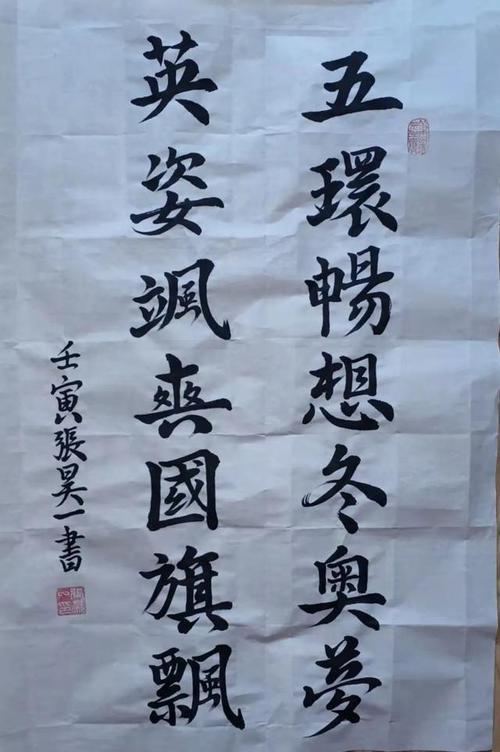 五環暢想冬奧夢
英姿颯爽國旗飄
壬寅張昊一書